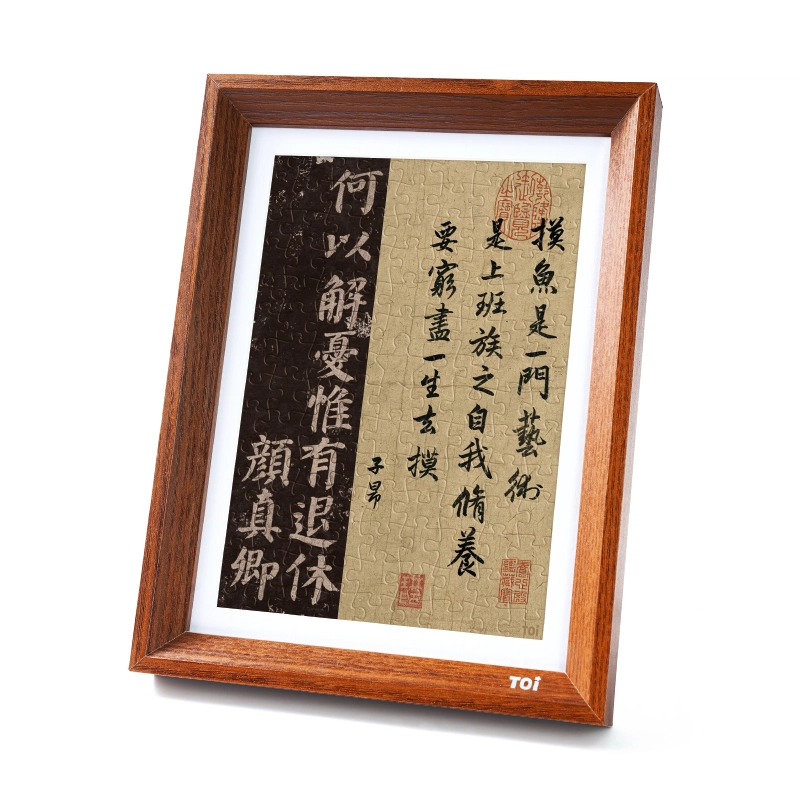 摸魚是一門藝術
是上班族之自我脩養
要窮盡一生去摸
子昂
何以解憂惟有退休
顏真卿
TOi
TOi